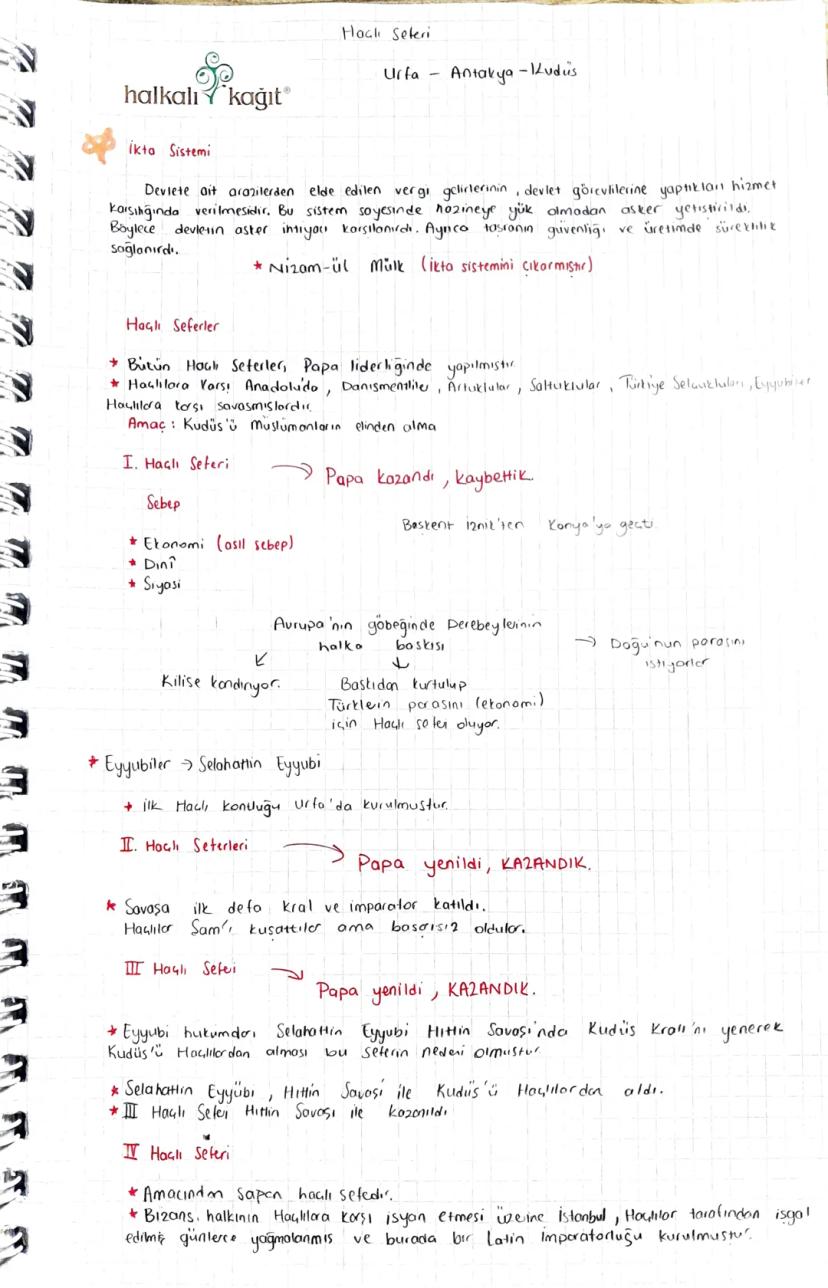 Haçlı Seferi
Urfa - Antakya - Kudüs
halkalı kağıt®
İkta Sistemi
Devlete ait arazilerden elde edilen vergi gelirlerinin, devlet görevlilerine yaptıkları hizmet
karşılığında verilmesidir. Bu sistem sayesinde hazineye yük olmadan asker yetiştirildi.
Böylece devletin asker ihtiyacı karşılanırdı. Ayrıca taşranın güvenliği ve üretimde süreklilik
sağlanırdı.
* Nizam-ül Mülk (İkta sistemini çıkarmıştır)
Haçlı Seferler
* Bütün Haçlı Seferler, Papa liderliğinde yapılmıştır.
* Haçlılara Karşı Anadolu'da, Danişmentliler, Artuklular, Saltuklular, Türkiye Selçukluları, Eyyubiler
Haçlılara karşı savaşmışlardır.
Amaç: Kudüs'ü Müslümanların elinden alma
I. Haçlı Seferi → Papa kazandı, kaybettik.
Sebep
Başkent İznik'ten Konya'ya geçti.
* Ekonomi (asıl sebep)
* Dinî
* Siyasi
Avrupa'nın göbeğinde Derebeylerinin
halka baskısı → Doğu'nun parasını
istiyorlar
↙ ↓
Kilise kandırıyor. Baskıdan kurtulup
Türklerin parasını (ekonomi)
için Haçlı seferi oluyor.
* Eyyubiler → Selahattin Eyyubi
+ İlk Haçlı kontluğu Urfa'da kurulmuştur.
II. Haçlı Seferleri → Papa yenildi, KAZANDIK.
* Savaşa ilk defa kral ve imparator katıldı.
Haçlılar Şam'ı kuşattılar ama başarısız oldular.
III Haçlı Seferi → Papa yenildi, KAZANDIK.
* Eyyubi hükümdarı Selahattin Eyyubi Hıttin Savaşı'nda Kudüs Kralı'nı yenerek
Kudüs'ü Haçlılardan alması bu seferin nedeni olmuştur.
* Selahattin Eyyübi, Hıttin Savaşı ile Kudüs'ü Haçlılardan aldı.
* III Haçlı Seferi Hıttin Savaşı ile kazanıldı
IV Haçlı Seferi
* Amacından sapan haçlı seferdir.
* Bizans halkının Haçlılara karşı isyan etmesi üzerine İstanbul, Haçlılar tarafından işgal
edilmiş günlerce yağmalanmış ve burada bir Latin İmparatorluğu kurulmuştur.